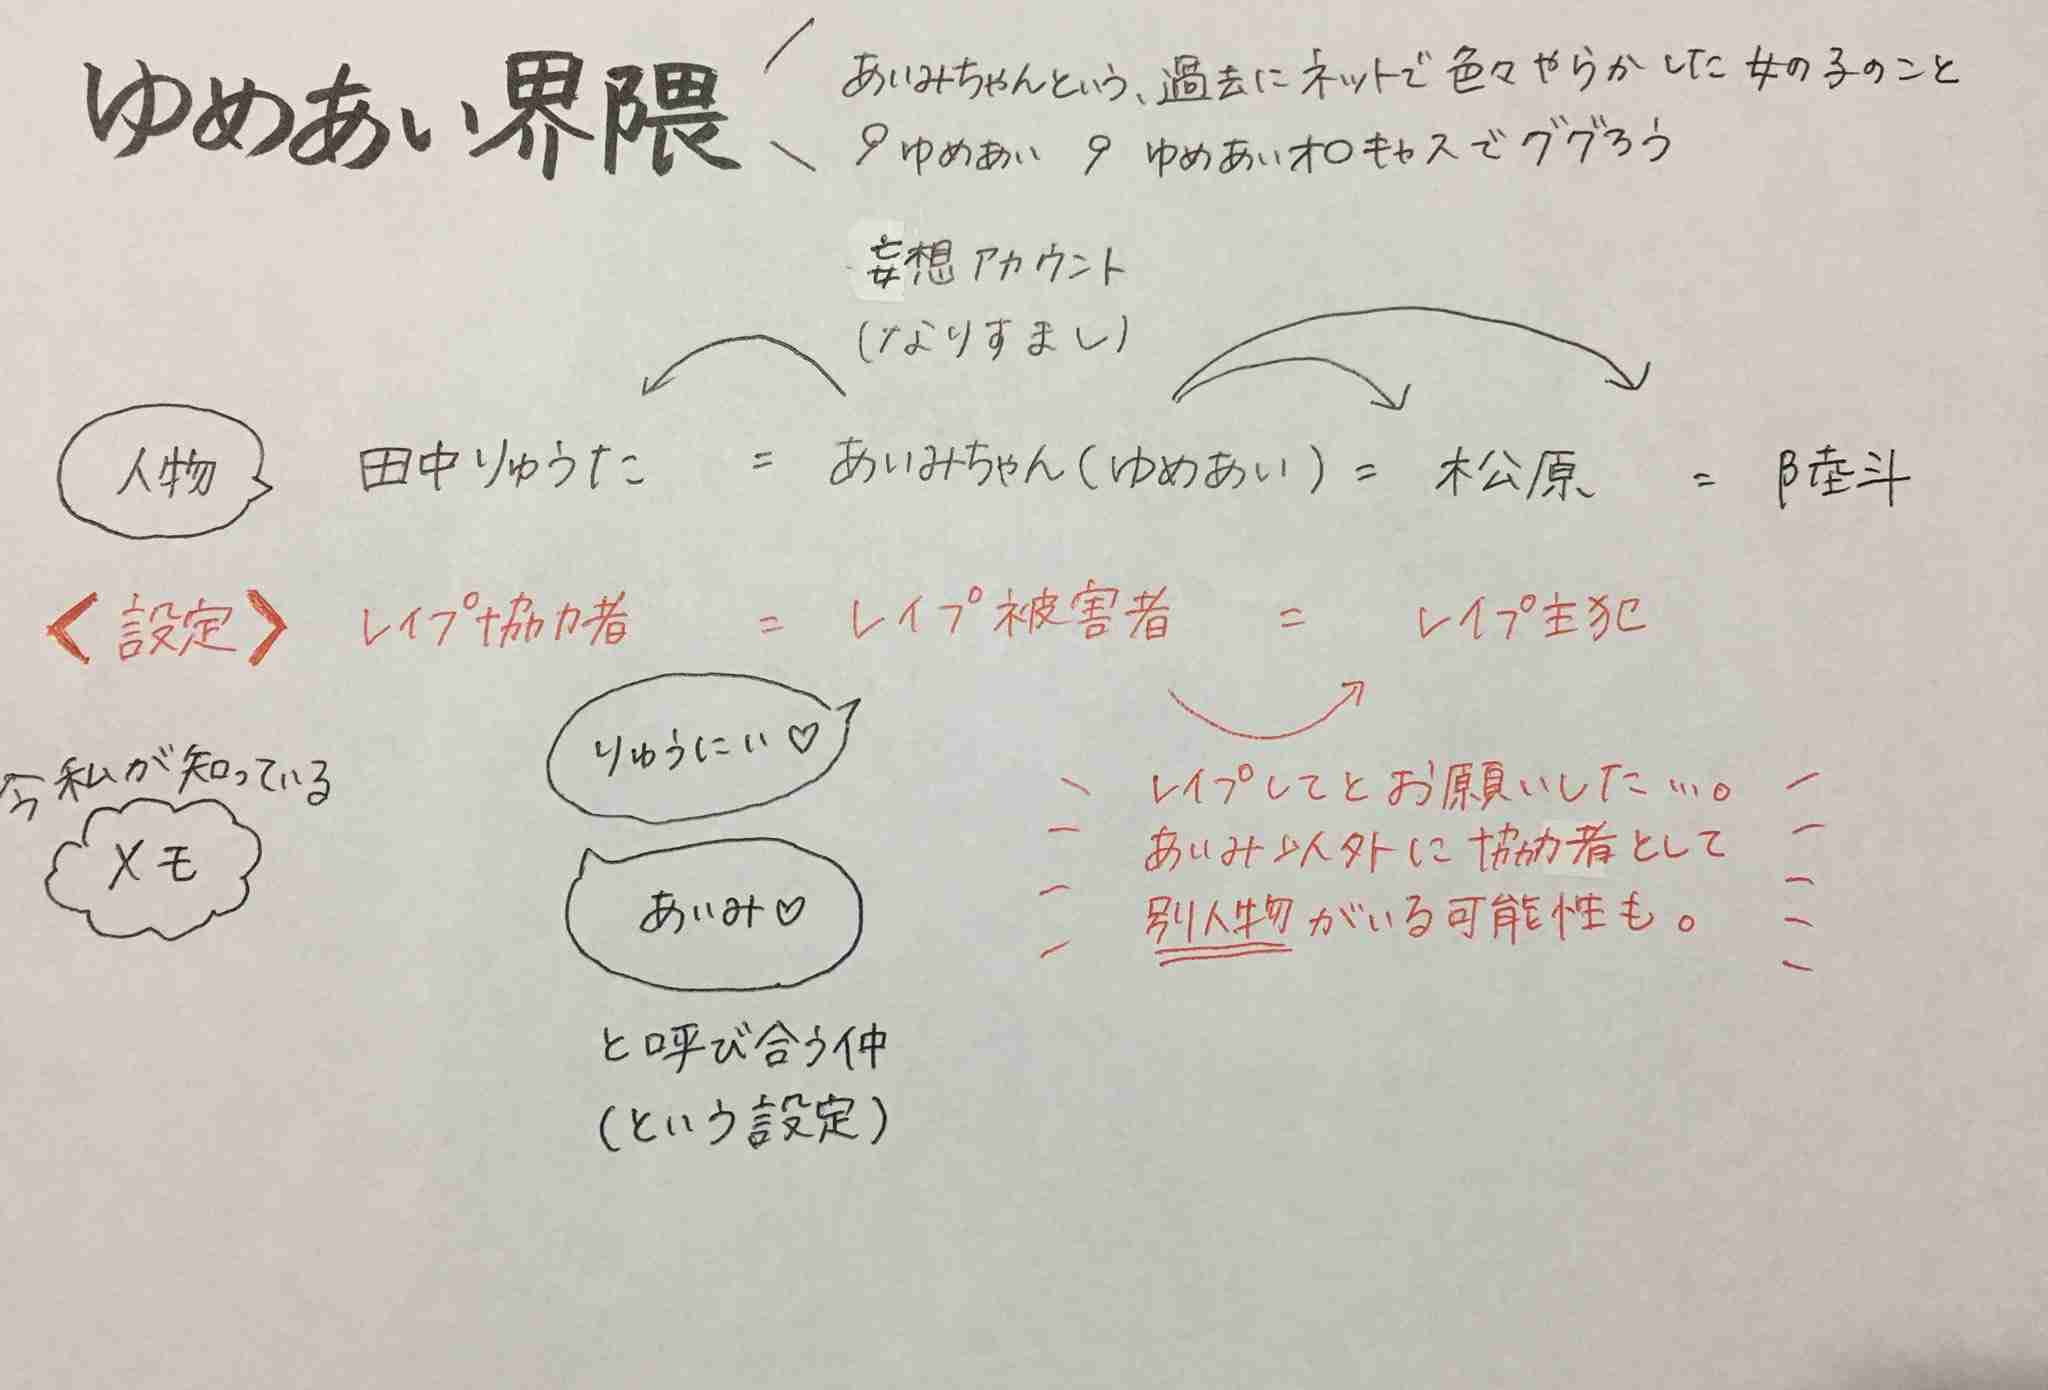 ゆめあい界隈
あいみちゃんという、過去にネットで色々やらかした女の子のこと
ゆめあい ゆめあいオロキャスでググろう
妄想アカウント
(なりすまし)
人物
田中りゅうた = あいみちゃん(ゆめあい) = 松原 = 陸斗
<設定> レイプ協力者 = レイプ被害者 = レイプ主犯
りゅうにい♡
今私が知っている
メモ
レイプしてとお願いした…。
あいみ以外に協力者として
別人物がいる可能性も。
あいみ♡
と呼び合う仲
(という設定)